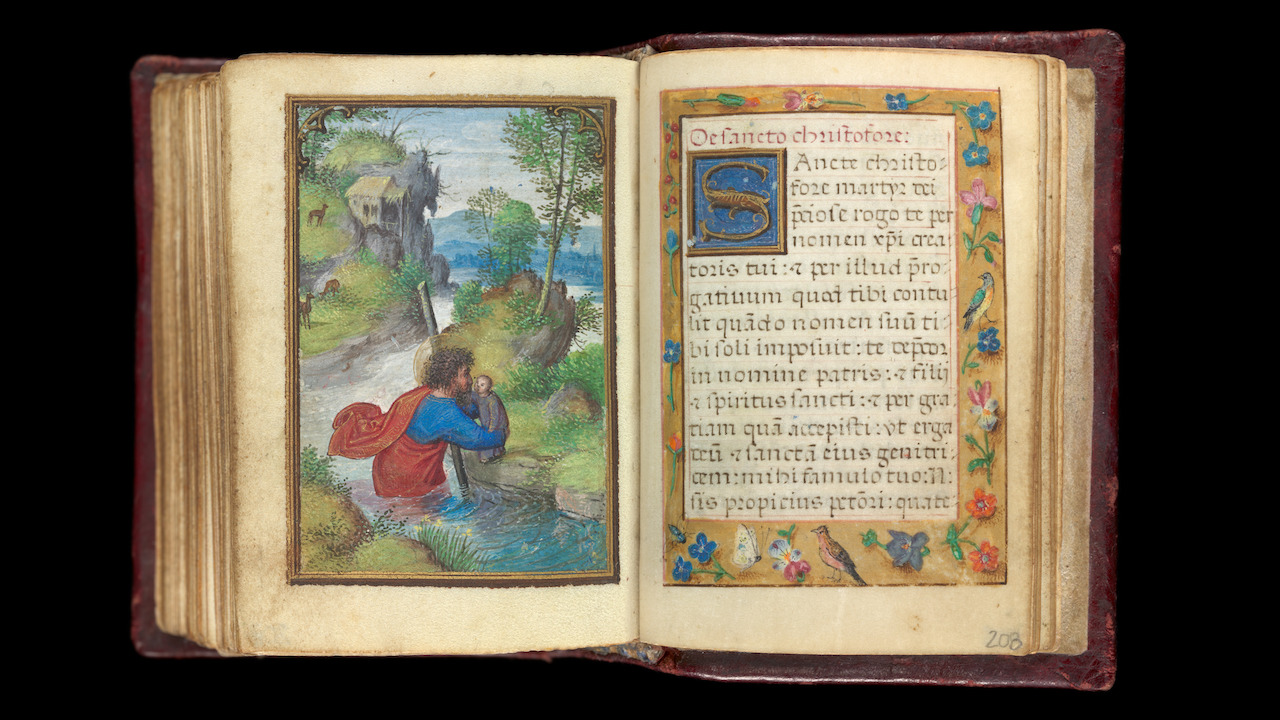 De sancto christofore:
SAncte christo-
fore martyr dei
p̄ciose rogo te per
nomen xp̄i crea-
toris tui: ⁊ per illud p̄ro-
gatiuum quod tibi contu-
lit quādo nomen suū ti-
bi soli imposuit: te dep̄cor
in nomine patris: ⁊ filii
⁊ spiritus sancti: ⁊ per gra
tiam quā accepisti: vt erga
deū ⁊ sanctā eius genitri-
cem: mihi famulo tuo: N:
sis propicius pctōri: quate-
208